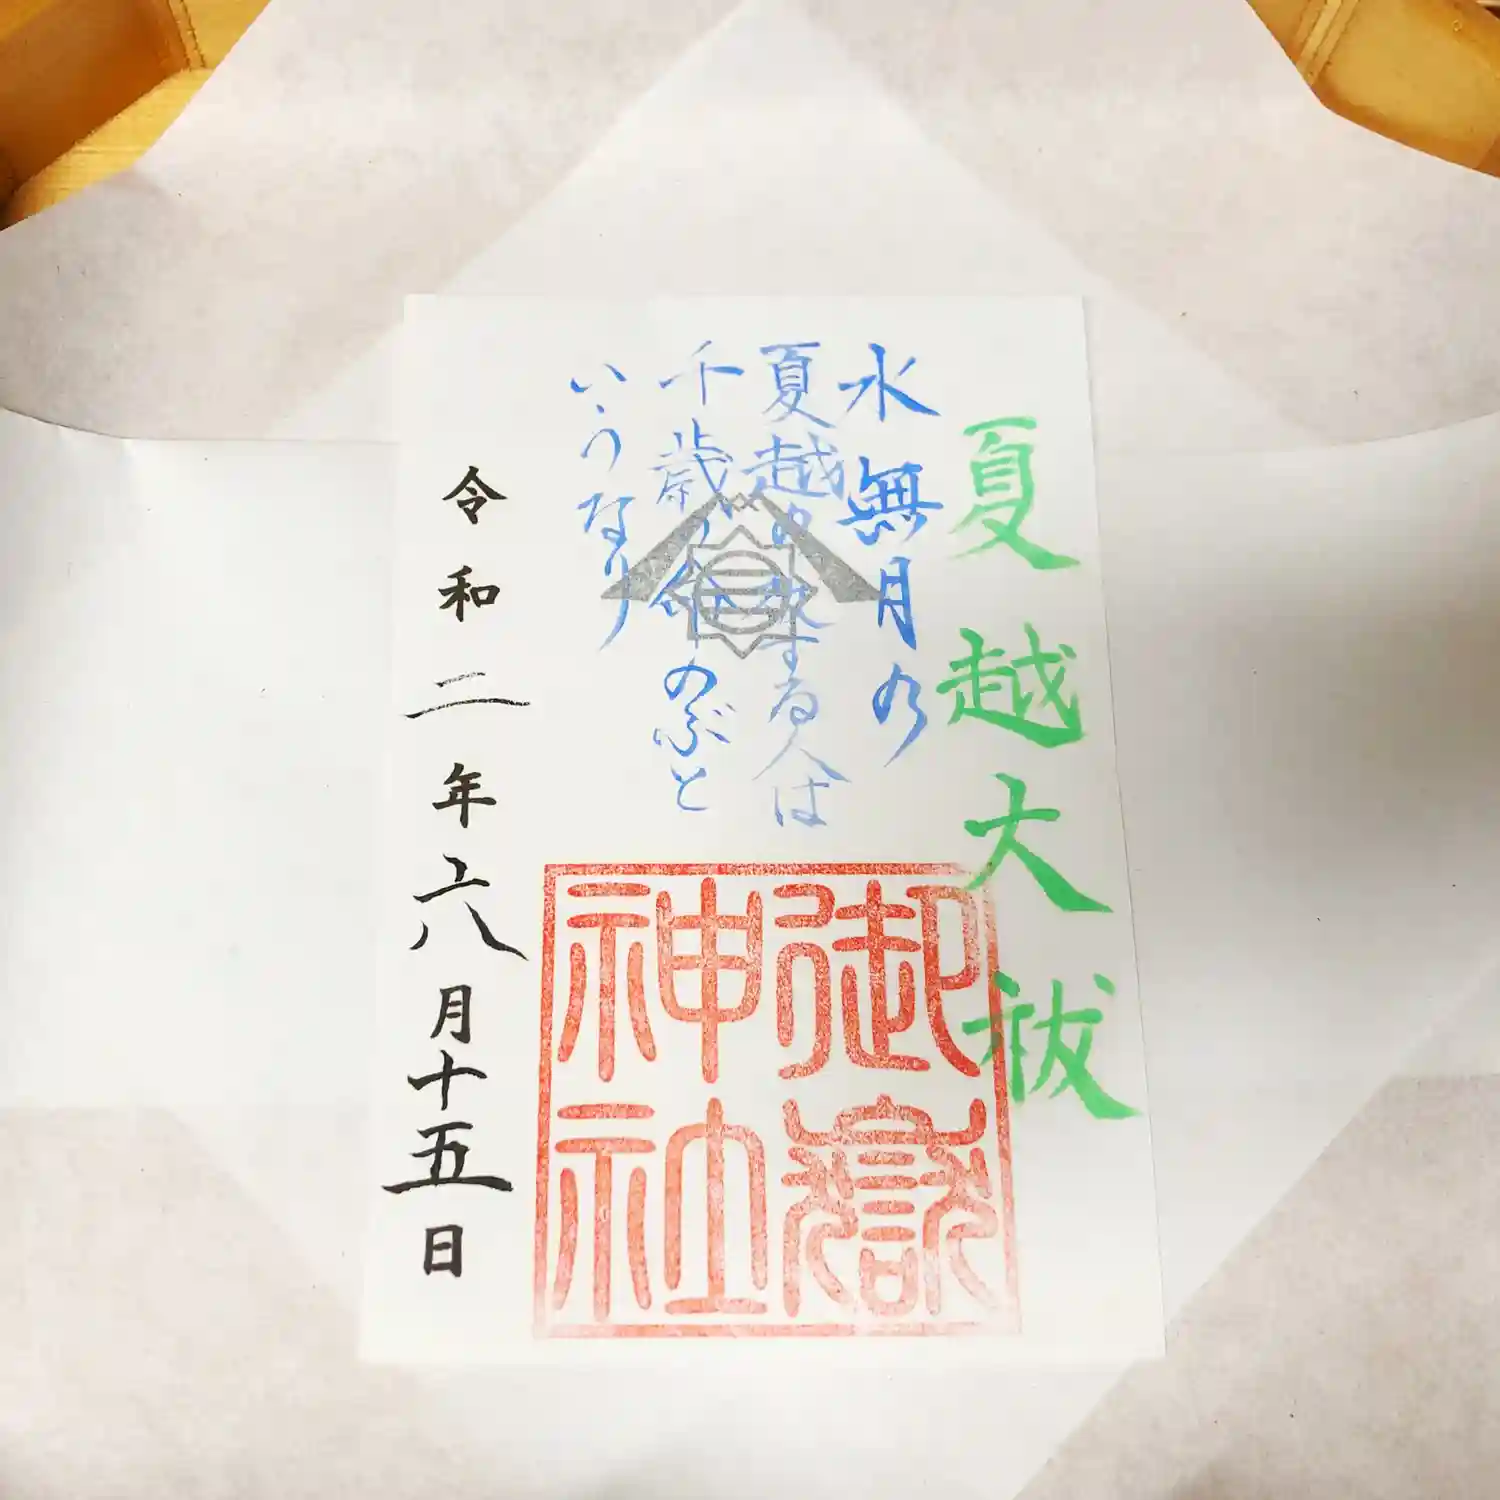 夏越大祓
水無月の
夏越の祓する人は
千歳の命のぶと
いうなり
御嶽
神社
令和二年六月十五日